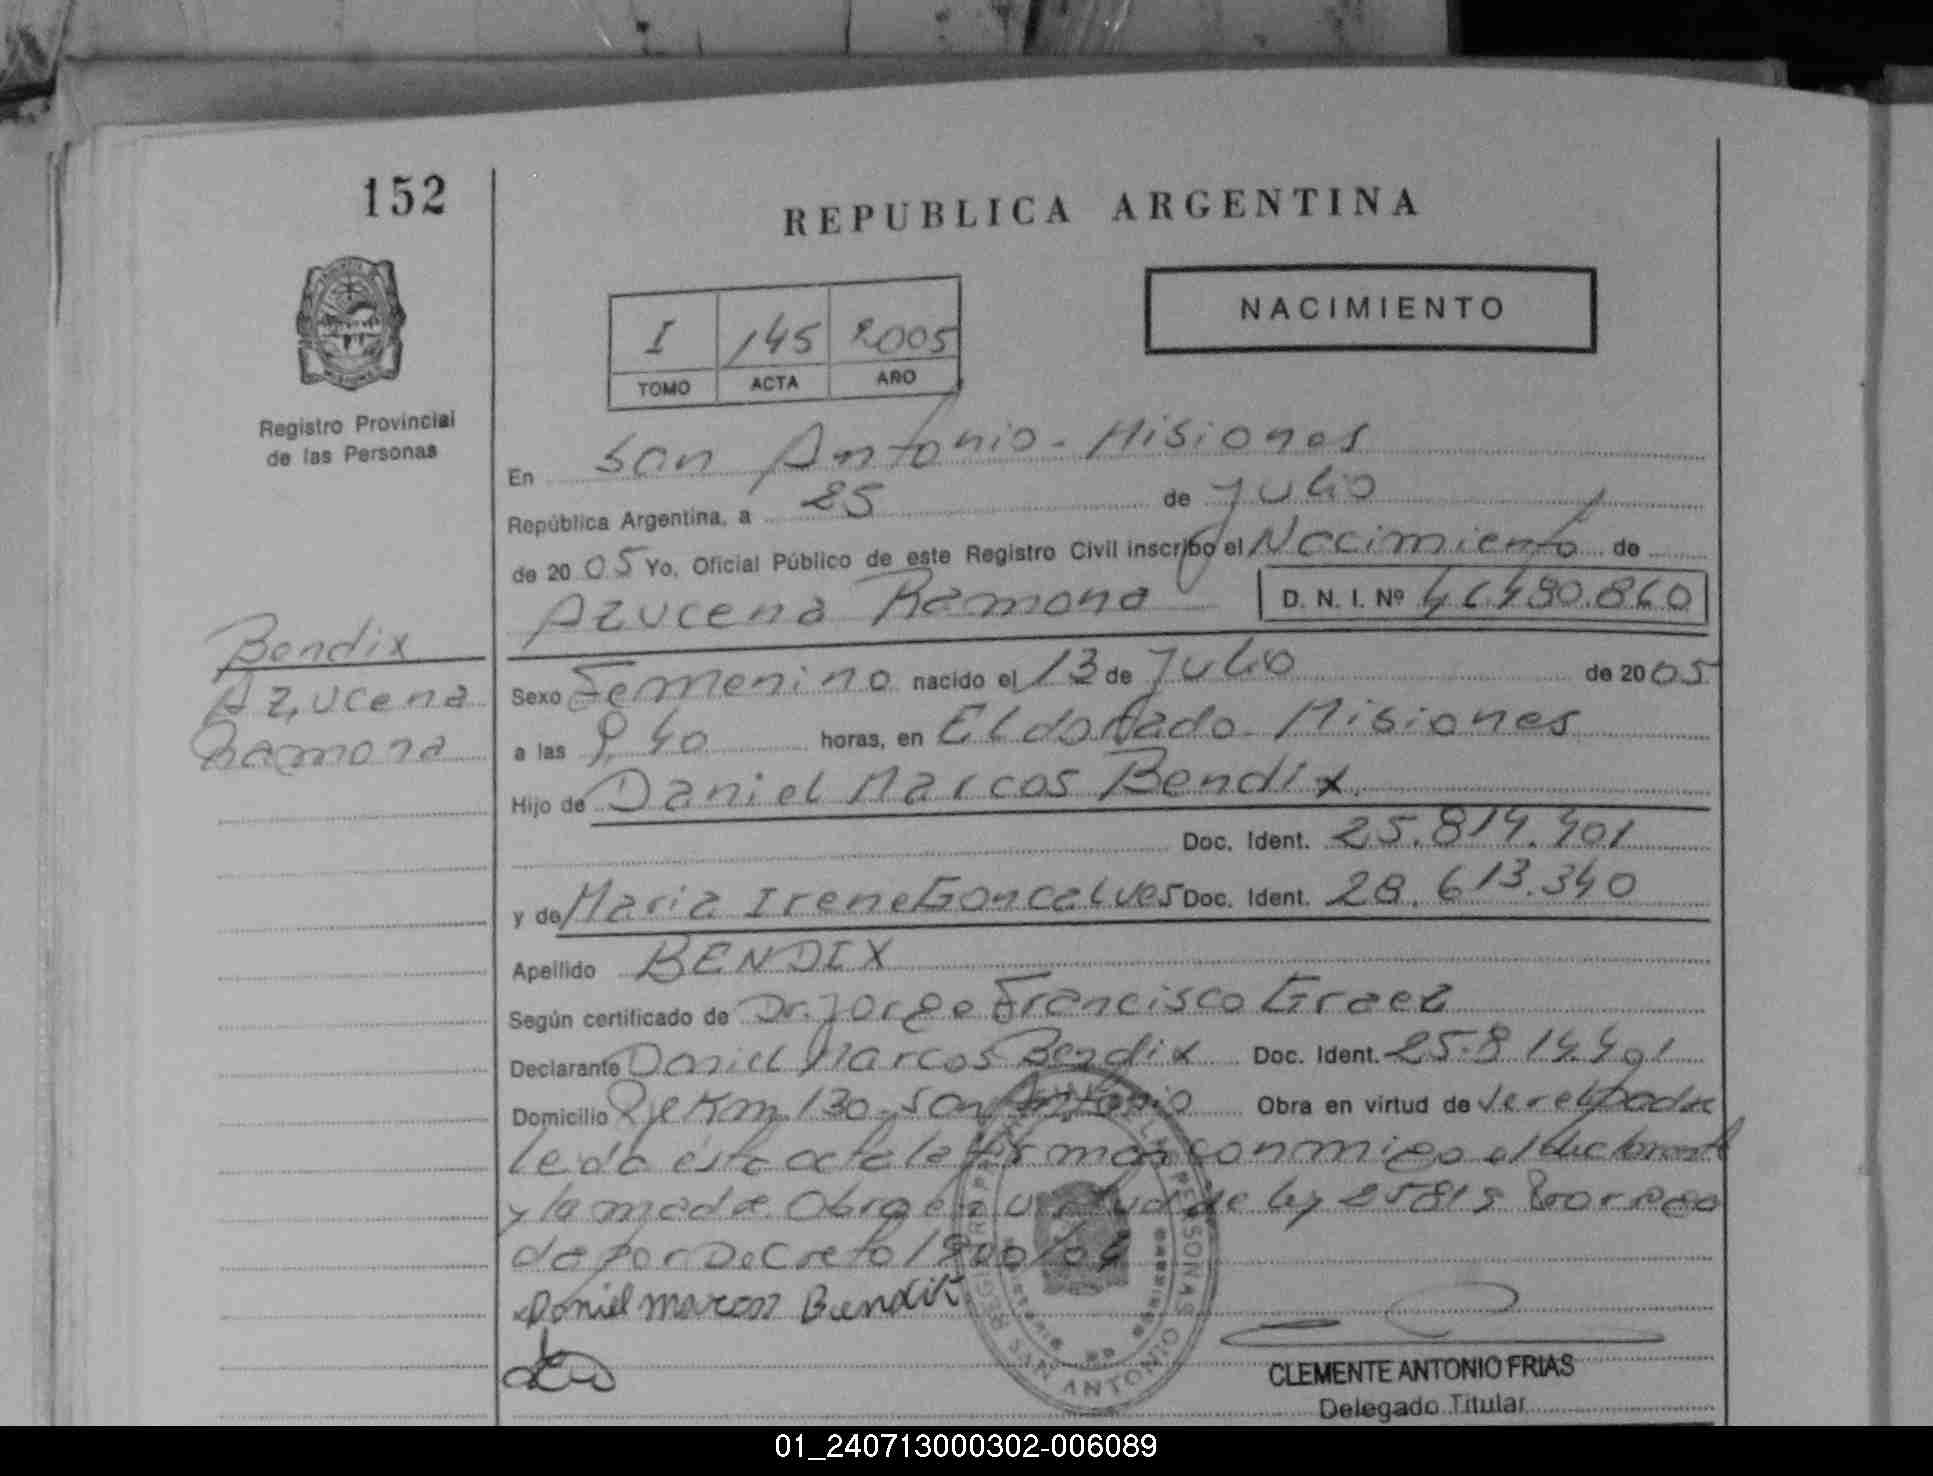 152
REPUBLICA ARGENTINA
NACIMIENTO
I 145 2005
TOMO ACTA AÑO
Registro Provincial
de las Personas
En San Antonio - Misiones
República Argentina, a 25 de Julio
de 2005 Yo, Oficial Público de este Registro Civil inscribo el Nacimiento de
Azucena Ramona D. N. I. Nº
Bendix
Azucena
Ramona
Sexo Femenino nacido el 13 de Julio de 2005
a las 9,40 horas, en Eldorado - Misiones
Hijo de Daniel Marcos Bendix
Doc. Ident. 25.814.401
y de Maria Irene Goncalves Doc. Ident. 28.613.340
Apellido BENDIX
Según certificado de Dr. Jorge Francisco
Declarante Daniel Marcos Bendix Doc. Ident. 25.814.401
Domicilio Km 130 - San Antonio Obra en virtud de ser el padre
leida esta acta la firman conmigo el declarante
y la madre. Obra en virtud de ley 25819 Prorroga
da por Decreto
Daniel marcos Bendix
PERSONAS
SAN ANTONIO
Misiones
CLEMENTE ANTONIO FRIAS
Delegado Titular
01_240713000302-006089